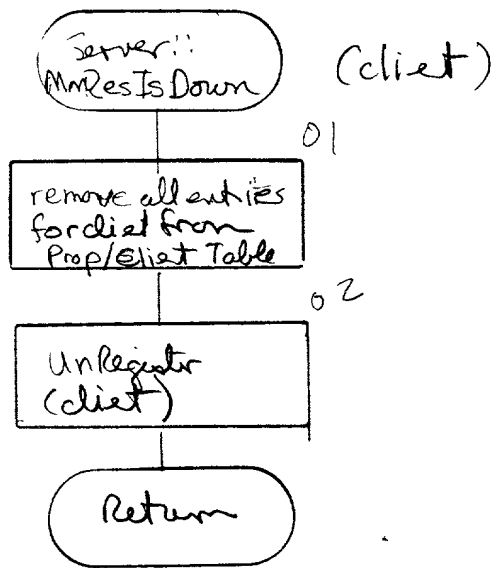 Server::
MmResIsDown
(cliet)
01
remove all entries
for cliet from
Prop/Client Table
02
UnRegister
(cliet)
Return